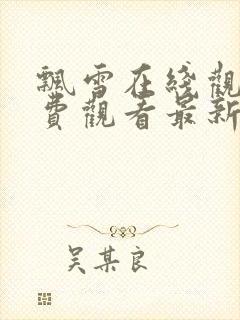 飄雪在綫觀
費觀看最新
吴某良